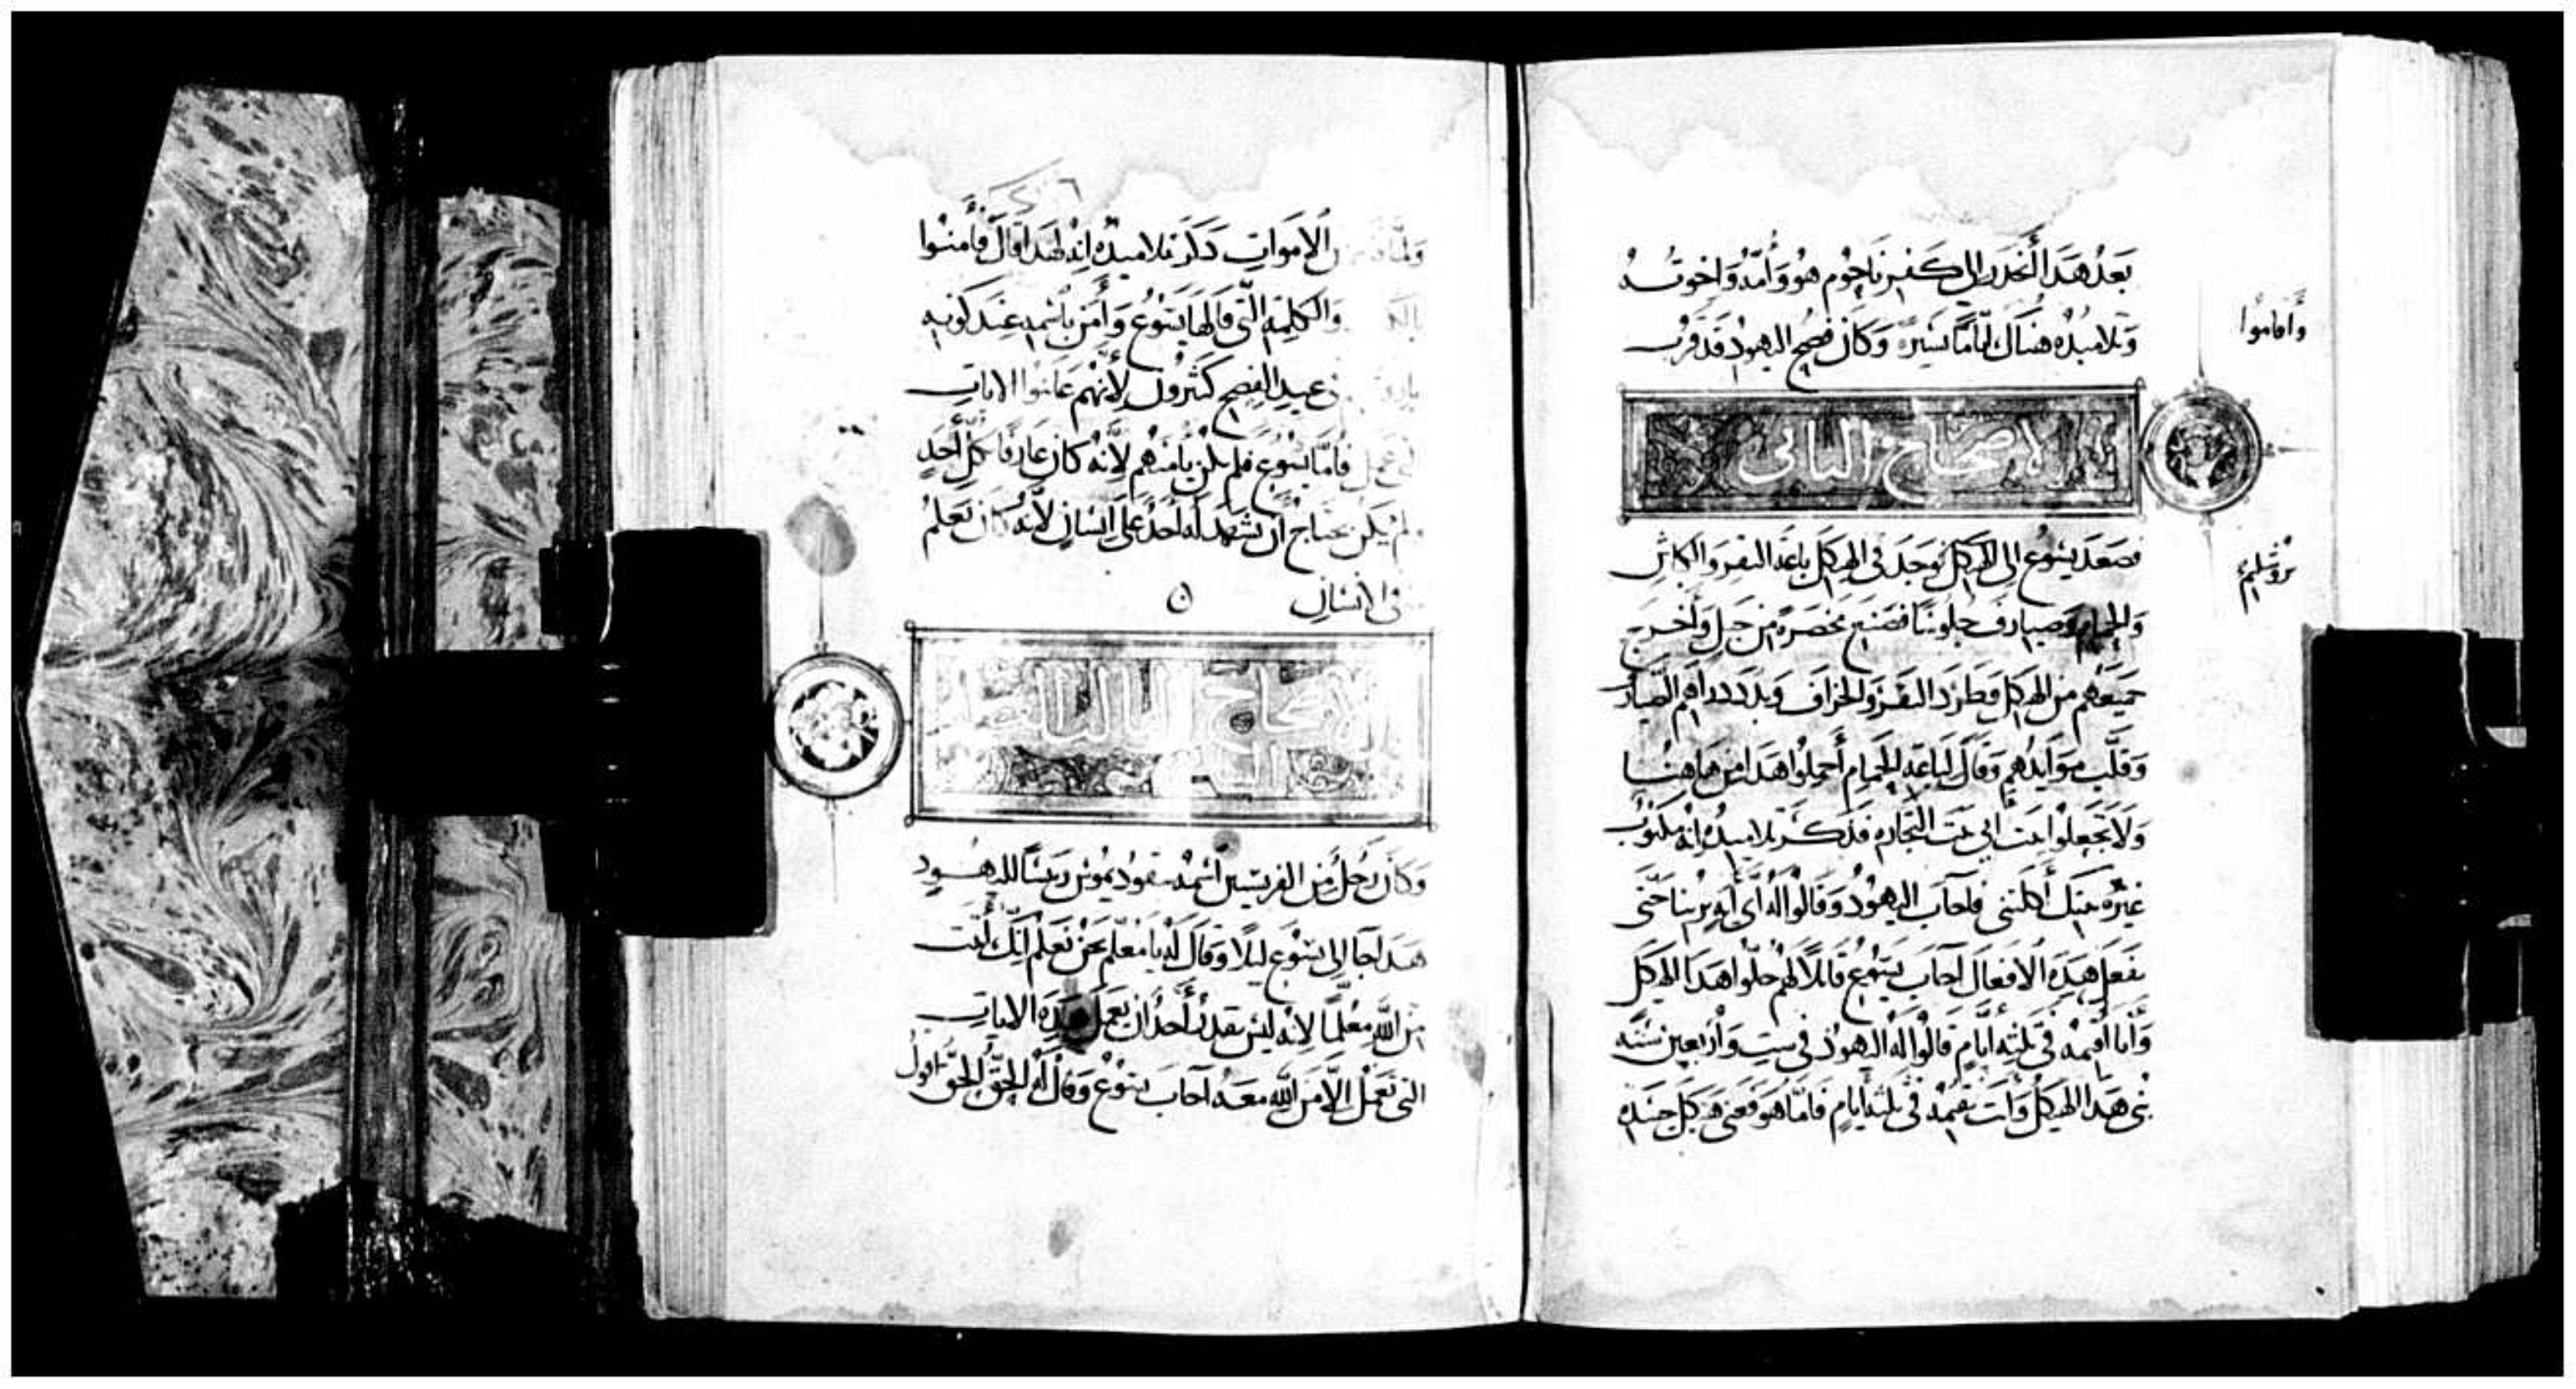 بَعدُ هَدَا اَنحَدَرَ اِلي كَفرنَاحُوم هُوَ وَأُمُّهُ وَاخوتُه
وَتلاميدُه هناك ايَّامًا يَسِيَرة وَكَان فصح اليهود قَد قرُب
وَأقاموُا
الاصحاح الثانى
فصَعَد يَسُوع الى الهيكل فوجَدَ فى الهيكل باعَة البقر وَالكباش
يرُوشليم
وَالحمام وَصيارف جلُوسًا فصَنَع مخصَرة من حَبل وَأخرَج
جميعَهُم من الهيكل وَطرَد البقر وَالخراف وَبدد دراهم الصيارف
وَقلَّب موَايدهم وَقال لباعَة الحمام أحملوا هَدا من هاهنا
وَلا تجعلوا بَيت ابى بَيت التجاره فدكر تلاميدُه انه مكتوُب
غيرَة بيتك أكلتنى فاجاب اليهود وَقالوُا له أى ايه ترينا حَتى
تفعَل هَده الافعال اجاب يَسوُع قايلا لهُم حلوا هَدا الهيكل
وَأنا أقيمه فى ثلثة ايَّام قالوُا له اليهود فى ستٍ وَأربعين سَنَه
بنى هَدا الهيكل وَأنت تقيمه فى ثلثة أيامٍ فامَّا هوَ فعنى هَيكل جسَده
وَلمَّا قام من الاموَاتِ دَكر تلاميدُه انه لهَدا قال فأمنوُا
وَالكلمة التى قالها يَسُوع وَأمَن باسمِه عندَ كونه
فى عيد الفصح كثيرُون لأنهُم عَاينوُا الايات
فامَّا يَسُوع فلم يكن يأمنهُم لأنه كان عَارفا بكل أحَدٍ
وَلم يكن يحتاج أن يشهَد له أحَدُ على انسَان لأنهُ كان يَعلمُ
فى الانسَان
الاصحاح الثالث
وَكان رَجل من الفريسين اسمُه نيقوُديموُس رَييسًا لليهُود
هَدا جا الى يَسُوع ليلا وَقال له يا معَلم نحنُ نعلم انك أتيت
من الله معَلمًا لانه ليسَ يقدر أحَدُ ان يَعمل هَده الايات
التى تعمَل الا مَن الله معَهُ اجاب يَسُوع وَقال له الحق الحق اقول